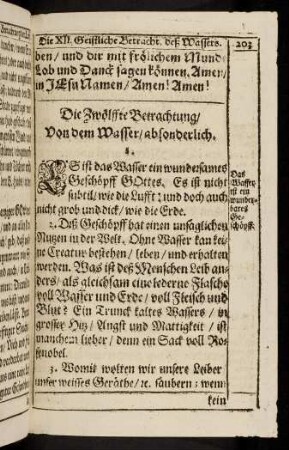 Die XII. Geistliche Betracht. deß Wassers. 203
ben/ und dir mit frölichem Mund
Lob und Danck sagen können. Amen/
in JEsu Namen/ Amen! Amen!
Die Zwölffte Betrachtung/
Von dem Wasser/ absonderlich.
1.
ES ist das Wasser ein wundersames
Geschöpff GOttes. Es ist nicht
subtil/ wie die Lufft: und doch auch
nicht grob und dick/ wie die Erde.
Das
Wasser
ist ein
wunder-
bares
Ge-
schöpff.
2. Diß Geschöpff hat einen unsaglichen
Nutzen in der Welt. Ohne Wasser kan kei-
ne Creatur bestehen/ leben/ und erhalten
werden. Was ist deß Menschen Leib an-
ders/ als gleichsam eine lederne Flasche
voll Wasser und Erde/ voll Fleisch und
Blut? Ein Trunck kaltes Wassers/ in
grosser Hitz/ Angst und Mattigkeit/ ist
manchem lieber/ denn ein Sack voll Ro-
senobel.
3. Womit wolten wir unsere Leiber
unser weisses Geräthe/ ꝛc. säubern: wenn
kein